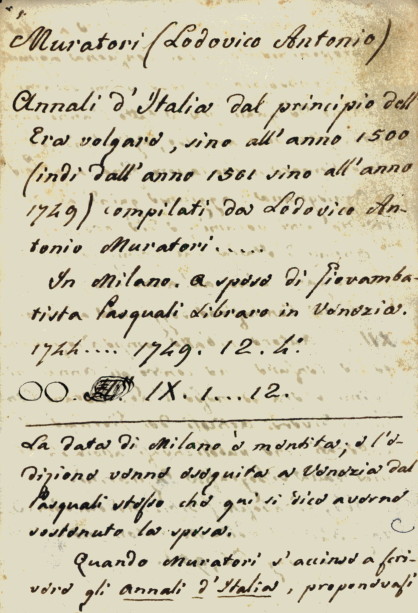 Muratori (Lodovico Antonio)
Annali d'Italia dal principio dell'
Era volgare, sino all'anno 1500
(indi dall'anno 1501 sino all'anno
1749) compilati da Lodovico An-
tonio Muratori.....
In Milano. a spese di Giovamba-
tista Pasquali Libraro in Venezia.
1744.... 1749. 12. 4.º
IX. 1...12.
La data di Milano è mentita; e l'e-
dizione venne eseguita a Venezia dal
Pasquali stesso che qui si dice averne
sostenuto la spesa.
Quando Muratori s'accinse a scri-
vere gli Annali d'Italia, proponevasi